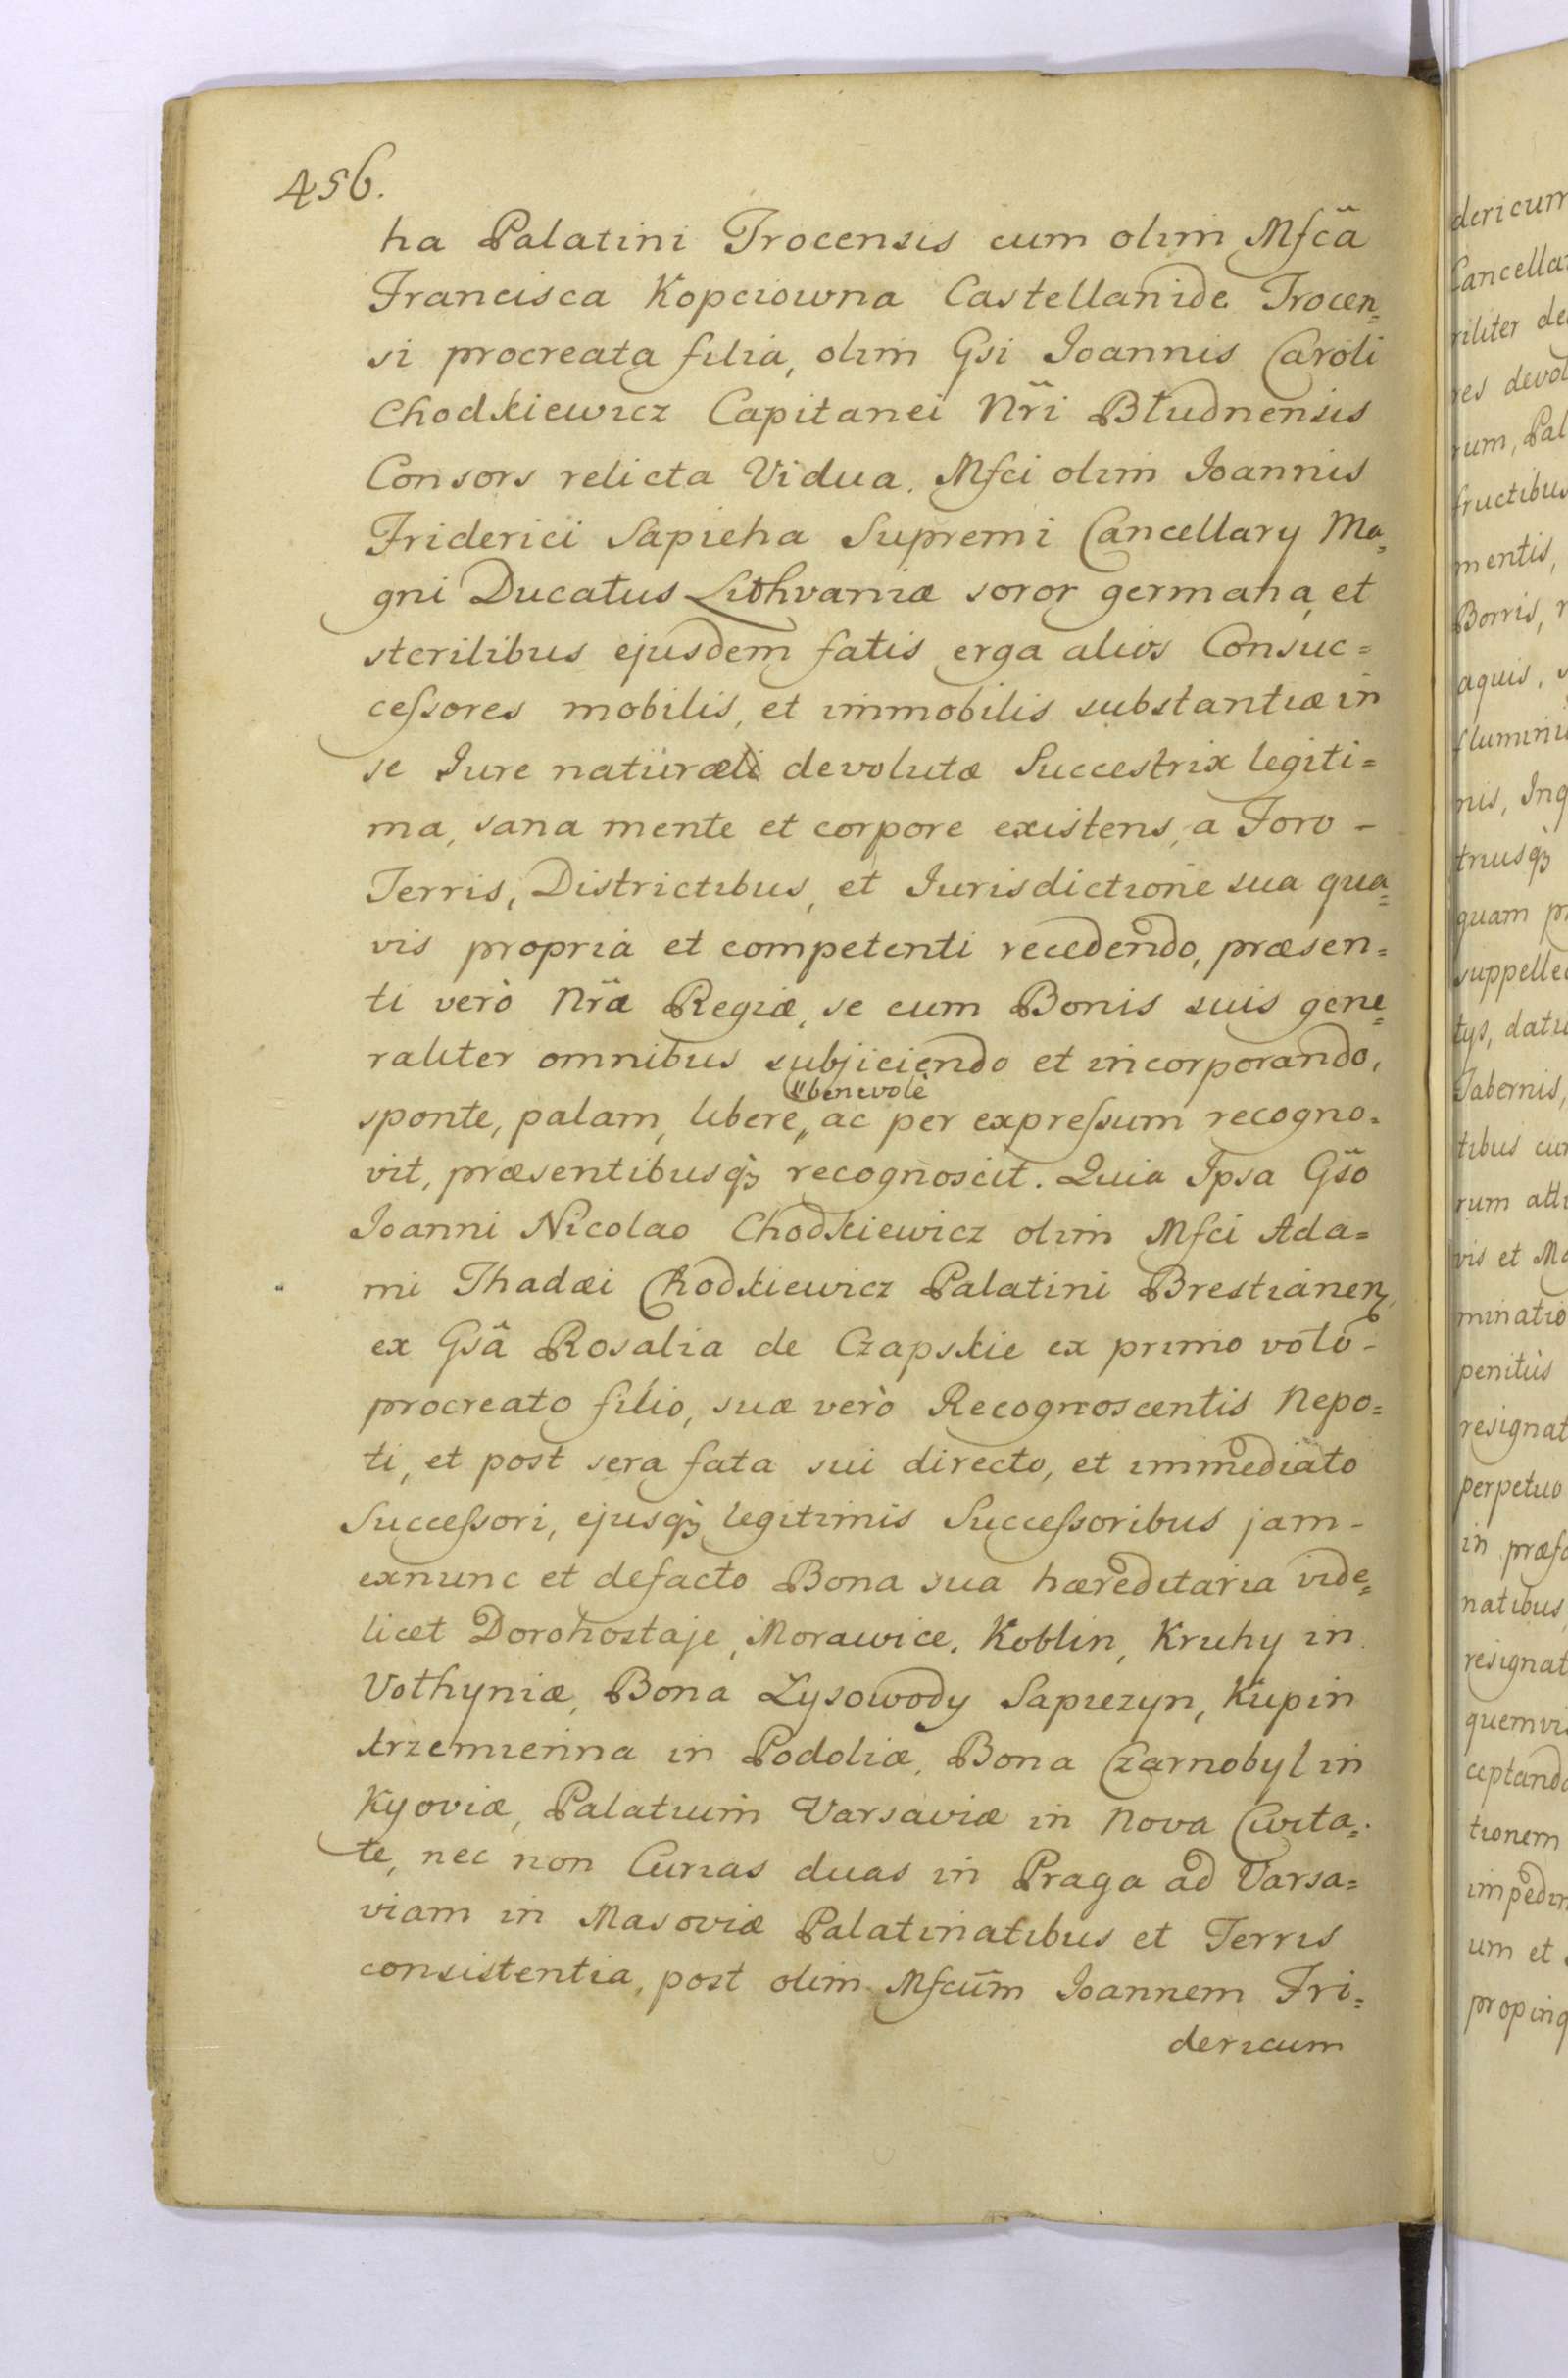 456.
ha Palatini Trocensis cum olim Mfcã
Francisca Kopciowna Castellanide Trocen=
si procreata filia, olim Gsi Ioannis Caroli
Chodkiewicz Capitanei Nr̃i Błudnensis
Consors relicta Vidua. Mfci olim Ioannis
Friderici Sapieha Supremi Cancellary Ma=
gni Ducatus Lithvaniæ soror germana, et
sterilibus ejusdem fatis erga alios Consuc=
ceſsores mobilis, et immobilis substantiæ in
se Iure naturali devolutæ Succestrix legiti=
ma, sana mente et corpore existens, a Foro -
Terris, Districtibus, et Iurisdictione sua qua=
vis propria et competenti recedendo, præsen=
ti verò Nr̃æ Regiæ, se cum Bonis suis gene=
raliter omnibus subjiciendo et incorporando,
"benevolè
sponte, palam, libere,, ac per expreſsum recogno=
vit, præsentibusqꝫ recognoscit. Quia Ipsa Gs̃o
Ioanni Nicolao Chodkiewicz olim Mfci Ada=
mi Thadæi Chodkiewicz Palatini Brestianen,
ex Gsã Rosalia de Czapskie ex primo voto -
procreato filio, suæ verò Recognoscentis Nepo=
ti, et post sera fata sui directo, et immediato
Succeſsori, ejusqꝫ legitimis Succeſsoribus jam -
exnunc et defacto Bona sua hæreditaria vide=
licet Dorohostaje, Morawice, Koblin, Kruhy in
Vołhyniæ, Bona Lysowody Sapiezyn, Kupin
krzemienna in Podoliæ, Bona Czarnobyl in
Kyoviæ, Palatium Varsaviæ in Nova Civita=
te, nec non Curias duas in Praga ad Varsa=
viam in Masoviæ Palatinatibus et Terris
consistentia, post olim Mfcũm Ioannem Fri=
dericum
dericum
Cancella
riliter de
res devol
rum, Pal
fructibus
mentis,
aquis,
nis, Inq
quam pr
Tabernis,
rum
vis et Ma
minatio
penitùs
resignat
perpetuo
in præfa
natibus
resignat
quemvi
ceptando
tionem
impedim
um et
propinq